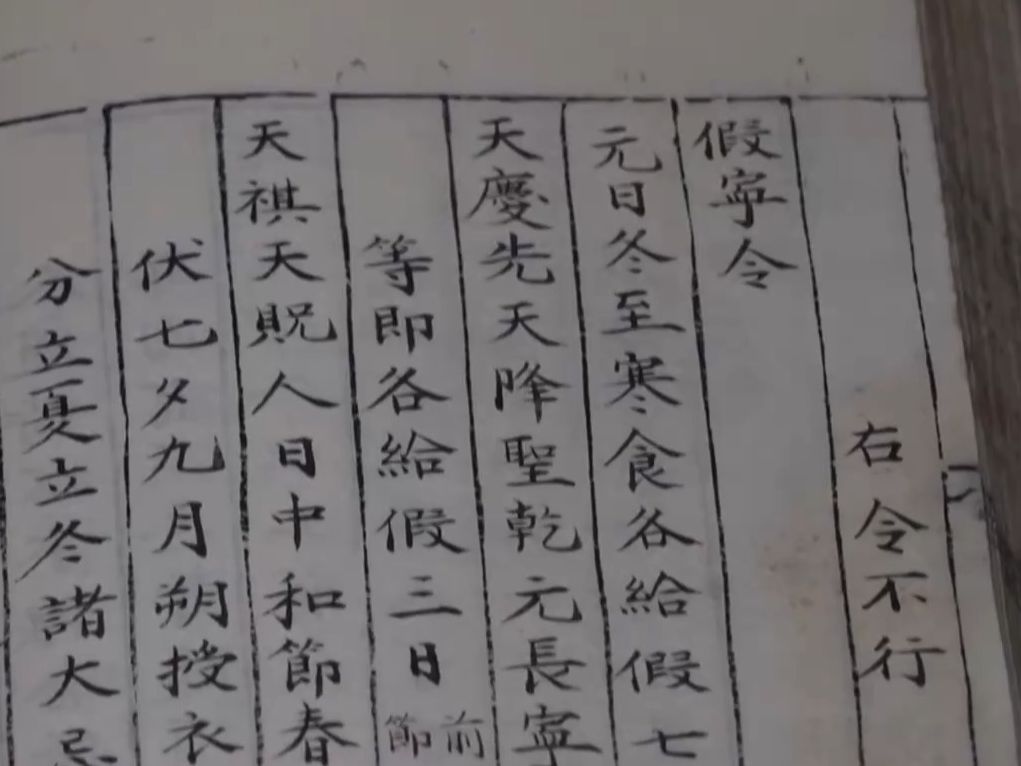 右令不行
假寧令
元日冬至寒食各給假七
天慶先天降聖乾元長寧
等即各給假三日前節
天祺天貺人日中和節春
伏七夕九月朔授衣
分立夏立冬諸大忌